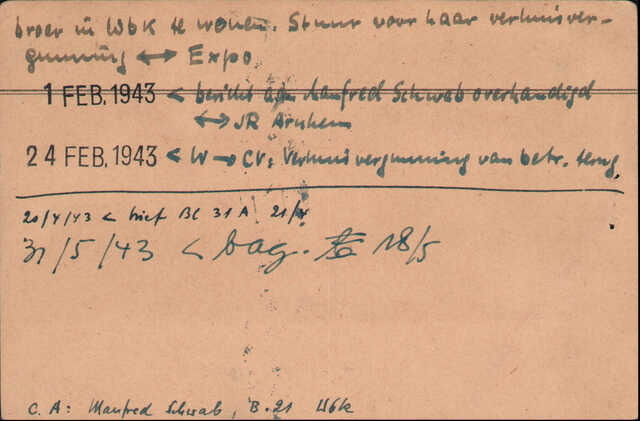 broer in Wbk te wonen. Stuur voor haar verhuisver-
gunning <-> Expo
1 FEB. 1943 < bericht aan Manfred Schwab overhandigd
<-> JR Arnhem
24 FEB. 1943 < W -> CV: Verhuisvergunning van betr. terug
20/4/43 < brief BC 31A 21/4
31/5/43 < bag. 18/5
C.A: Manfred Schwab, B.21 Wbk